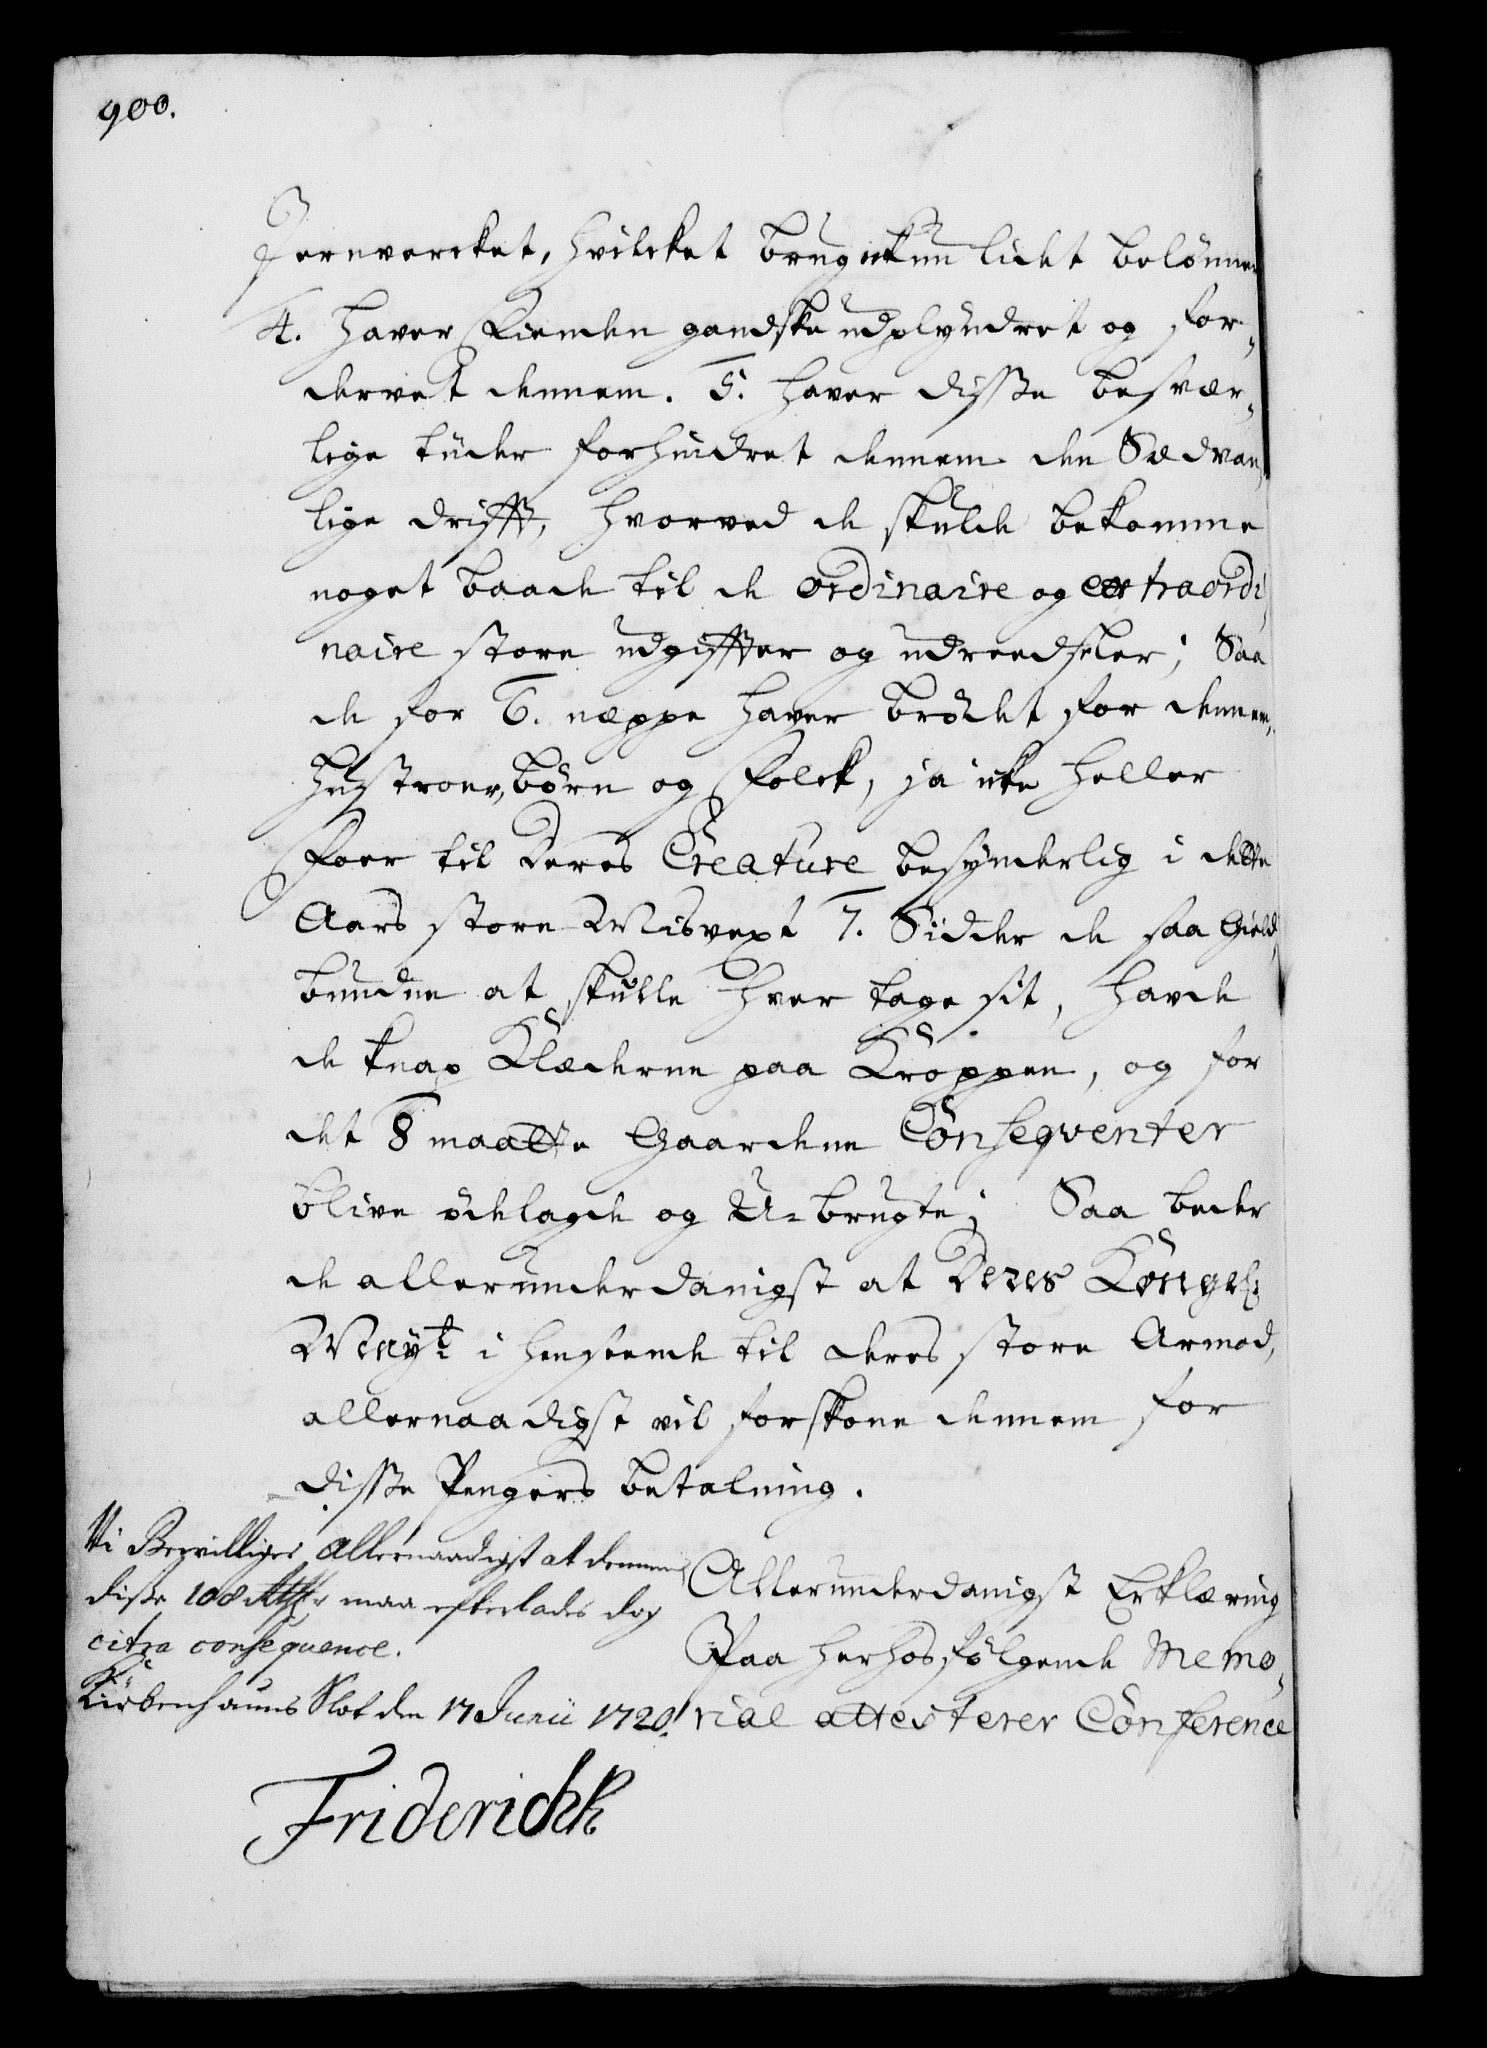 900.
Jernvercket, hvilcket brug ickun lidet belönner
4. haver Fienden gandske udplyndret og for-
dervet dennem. 5. haver disse besvær-
lige tiider forhindret dennem den Sædvan-
lige drifft, hvorved de skulde bekomme
noget baade til de ordinaire og extraordi-
naire store udgiffter og udreedseler; Saa
de for 6. neppe haver brödet for dennem,
hustroer, börn og Folck, ja icke heller
Foer til deres Creature besynderlig i dette
Aars store Misvext 7. Sidder de saa Gield-
bundne at skulle hver tage sit, havde
de knap Klæderne paa Kroppen, og for
det 8 maatte Gaardene Conseqventer
blive ödelagde og U-brugte; Saa beder
de allerunderdanigst at Deres Kongel:
Mayt: i henseende til deres store Armod,
allernaadigst vil forskone dennem for
disse Pengers betalning.
Vi Bevilliger Allernaadigst at dennem
disse 108 Rdr maa efterlades dog
citra consequence.
Kiöbenhauns Slot den 17 Junii 1720.
Friderich R
Allerunderdanigst Erklæring
Paa herhosfölgende Memo-
rial attesterer Conference